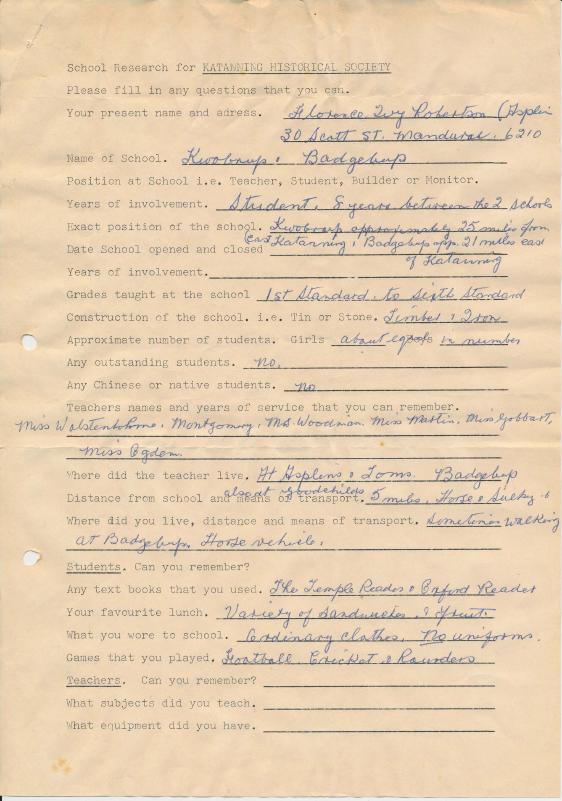 School Research for KATANNING HISTORICAL SOCIETY
Please fill in any questions that you can.
Your present name and adress. Florence Ivy Robertson (Asplin
30 Scott St. Mandurah. 6210
Name of School. Kwobrup & Badgebup
Position at School i.e. Teacher, Student, Builder or Monitor.
Years of involvement. Student, 8 years between the 2 schools
Exact position of the school. Kwobrup approximately 25 miles from
East Katanning, Badgebup app. 21 miles east
Date School opened and closed
of Katanning
Years of involvement.
Grades taught at the school 1st Standard to Sixth Standard
Construction of the school. i.e. Tin or Stone. Timber & Iron
Approximate number of students. Girls about equals in number
Any outstanding students. no.
Any Chinese or native students. no
Teachers names and years of service that you can remember.
Miss Wolstenholme, Montgomery, Mrs Woodman. Miss Martin, Miss Gobbart,
Miss Ogden.
Where did the teacher live. At Asplins & Toms. Badgebup
also at Goodchilds
Distance from school and means of transport. 5 miles, Horse & Sulky &
Where did you live, distance and means of transport. Sometimes walking
at Badgebup. Horse vehicle.
Students. Can you remember?
Any text books that you used. The Temple Reader & Oxford Reader
Your favourite lunch. Variety of sandwiches & fruit
What you wore to school. Ordinary clothes, No uniforms.
Games that you played. Football. Cricket & Rounders
Teachers. Can you remember?
What subjects did you teach.
What equipment did you have.